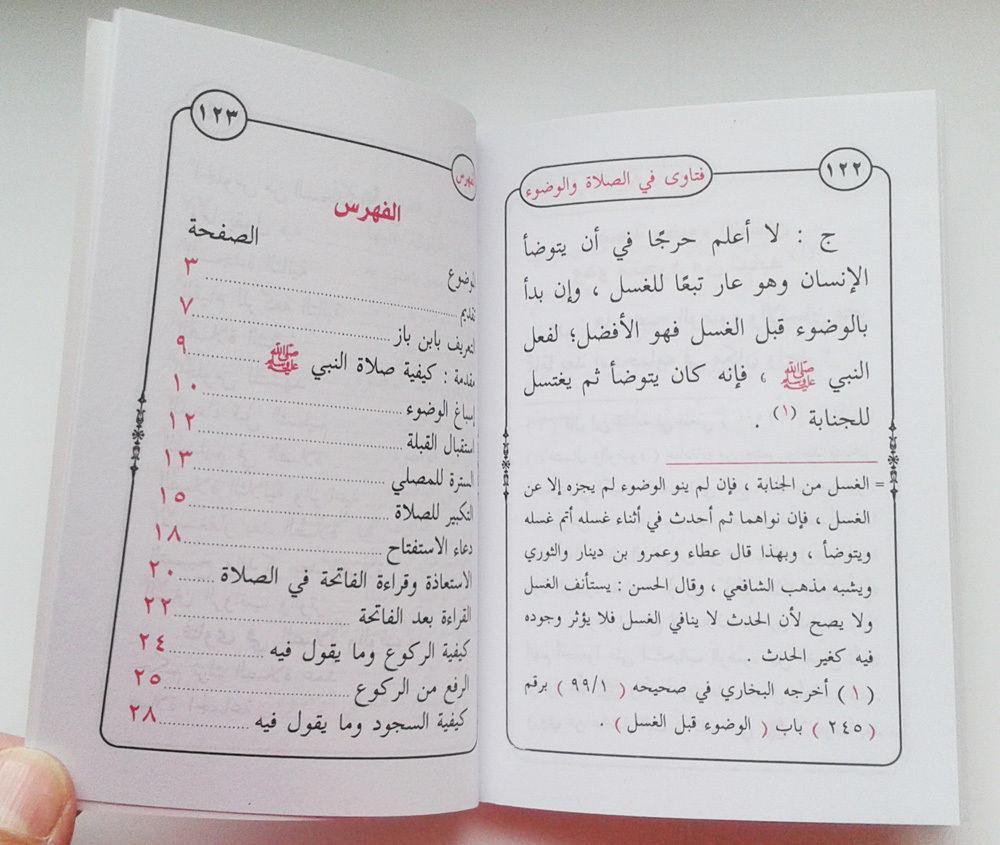 ١٢٢
فتاوى في الصلاة والوضوء
ج : لا أعلم حرجًا في أن يتوضأ
الإنسان وهو عار تبعًا للغسل ، وإن بدأ
بالوضوء قبل الغسل فهو الأفضل؛ لفعل
النبي ﷺ ، فإنه كان يتوضأ ثم يغتسل
للجنابة (١) .
= الغسل من الجنابة ، فإن لم ينو الوضوء لم يجزه إلا عن
الغسل ، فإن نواهما ثم أحدث في أثناء غسله أتم غسله
ويتوضأ ، وبهذا قال عطاء وعمرو بن دينار والثوري
ويشبه مذهب الشافعي ، وقال الحسن : يستأنف الغسل
ولا يصح لأن الحدث لا ينافي الغسل فلا يؤثر وجوده
فيه كغير الحدث .
(١) أخرجه البخاري في صحيحه (٩٩/١) برقم
(٢٤٥) باب (الوضوء قبل الغسل)
١٢٣
الفهرس
الفهرس
الصفحة
الموضوع
تقديم ٣
التعريف بابن باز ٧
مقدمة : كيفية صلاة النبي ﷺ ٩
إسباغ الوضوء ١٠
استقبال القبلة ١٢
السترة للمصلي ١٣
التكبير للصلاة ١٥
دعاء الاستفتاح ١٨
الاستعاذة وقراءة الفاتحة في الصلاة ٢٠
القراءة بعد الفاتحة ٢٢
كيفية الركوع وما يقول فيه ٢٤
الرفع من الركوع ٢٥
كيفية السجود وما يقول فيه ٢٨